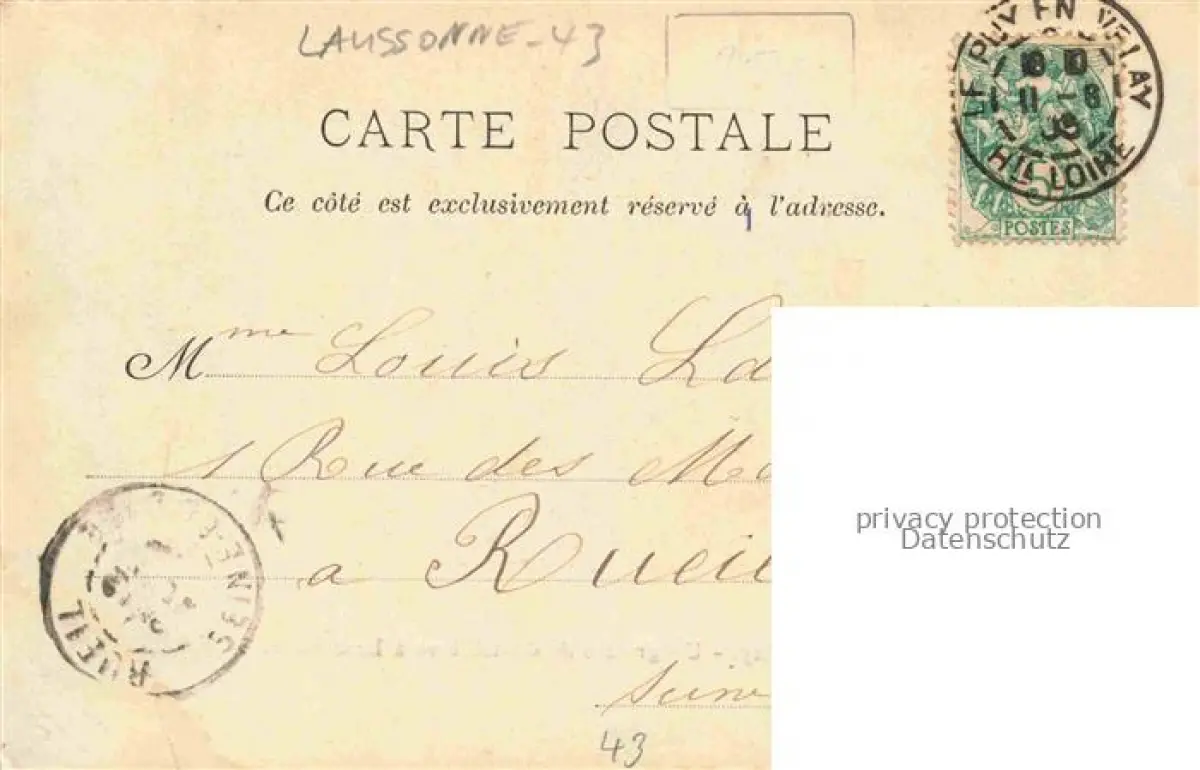 LAUSSONNE-43
CARTE POSTALE
Ce côté est exclusivement réservé à l'adresse.
LE PUY EN VELAY
11 -8
HTE LOIRE
5
POSTES
Mme Louis La
1 Rue des Ma
a Rueil
Seine
RUEIL
SEINE-ET-
43
privacy protection
Datenschutz